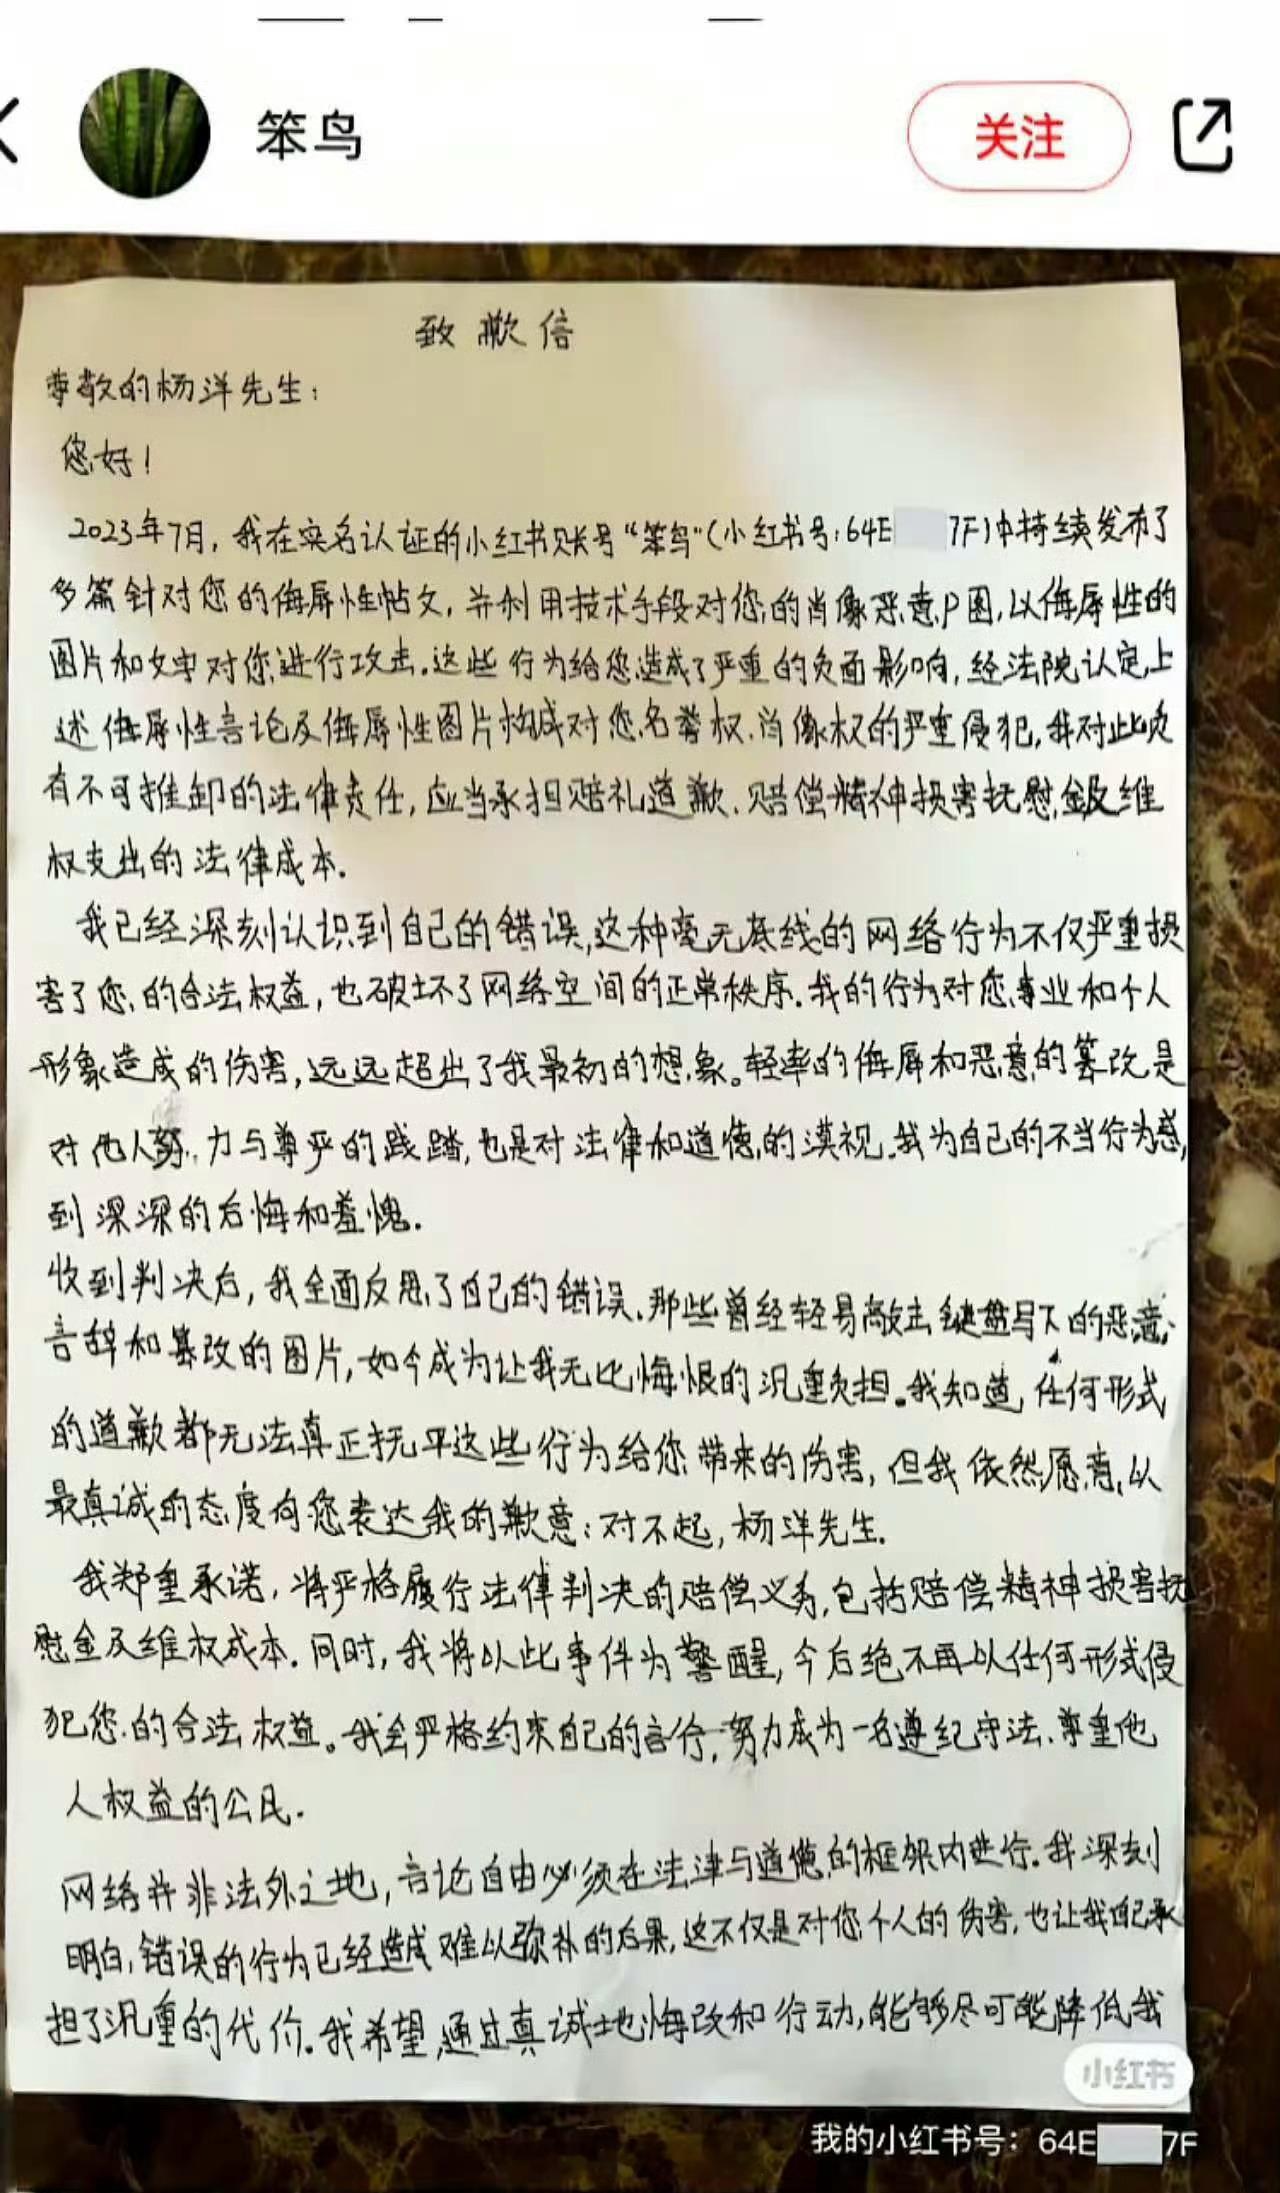 笨鸟
关注
致歉信
尊敬的杨洋先生:
您好!
2023年7月,我在实名认证的小红书账号“笨鸟”(小红书号:64E 7F)中持续发布了
多篇针对您的侮辱性帖文,并利用技术手段对您的肖像恶意P图,以侮辱性的
图片和文字对您进行攻击.这些行为给您造成了严重的负面影响,经法院认定,上
述侮辱性言论及侮辱性图片构成对您名誉权、肖像权的严重侵犯,我对此负
有不可推卸的法律责任,应当承担赔礼道歉、赔偿精神损害抚慰金及维
权支出的法律成本.
我已经深刻认识到自己的错误,这种毫无底线的网络行为不仅严重损
害了您的合法权益,也破坏了网络空间的正常秩序.我的行为对您事业和个人
形象造成的伤害,远远超出了我最初的想象。轻率的侮辱和恶意的篡改是
对他人努力与尊严的践踏,也是对法律和道德的漠视.我为自己的不当行为感
到深深的后悔和羞愧.
收到判决后,我全面反思了自己的错误.那些曾经轻易敲击键盘写下的恶意
言辞和篡改的图片,如今成为让我无比悔恨的沉重负担。我知道,任何形式
的道歉都无法真正抚平这些行为给您带来的伤害,但我依然愿意以
最真诚的态度向您表达我的歉意:对不起,杨洋先生.
我郑重承诺,将严格履行法律判决的赔偿义务,包括赔偿精神损害抚
慰金及维权成本.同时,我将以此事件为警醒,今后绝不再以任何形式侵
犯您的合法权益。我会严格约束自己的言行,努力成为一名遵纪守法、尊重他
人权益的公民.
网络并非法外之地,言论自由必须在法律与道德的框架内进行.我深刻
明白,错误的行为已经造成难以弥补的后果,这不仅是对您个人的伤害,也让我自己承
担了沉重的代价.我希望,通过真诚地悔改和行动,能够尽可能降低我
小红书
我的小红书号:64E 7F